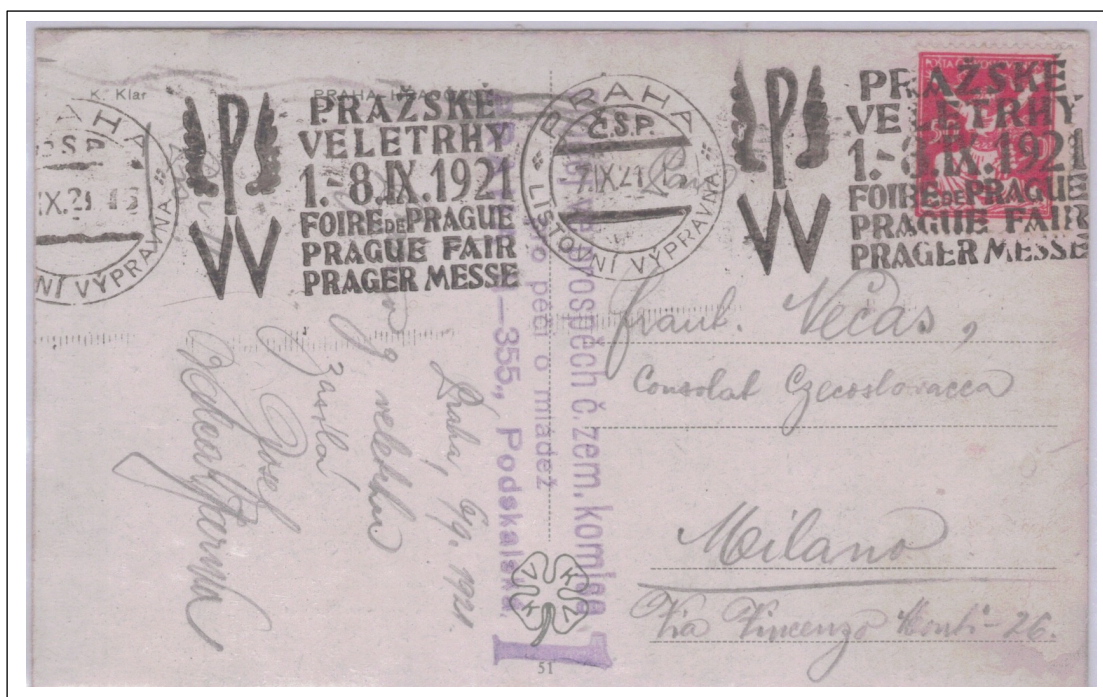 K. Klar
PRAHA
PRAHA
Č.S.P.
IX.21
LISTOVNÍ VÝPRAVNA
PRAŽSKÉ
VELETRHY
1.-8.IX.1921
FOIRE DE PRAGUE
PRAGUE FAIR
PRAGER MESSE
PRAHA
Č.S.P.
7.IX.21
LISTOVNÍ VÝPRAVNA
PRAŽSKÉ
VELETRHY
1.-8.IX.1921
FOIRE DE PRAGUE
PRAGUE FAIR
PRAGER MESSE
ve prospěch č. zem. komise
pro péči o mládež
-355., Podskalská
Praha, 6/9. 1921.
veletrhu
zasílá
Josef
Frant. Nečas,
Consolat Czecoslovacca
Milano
Via Vincenzo Monti - 26.
51